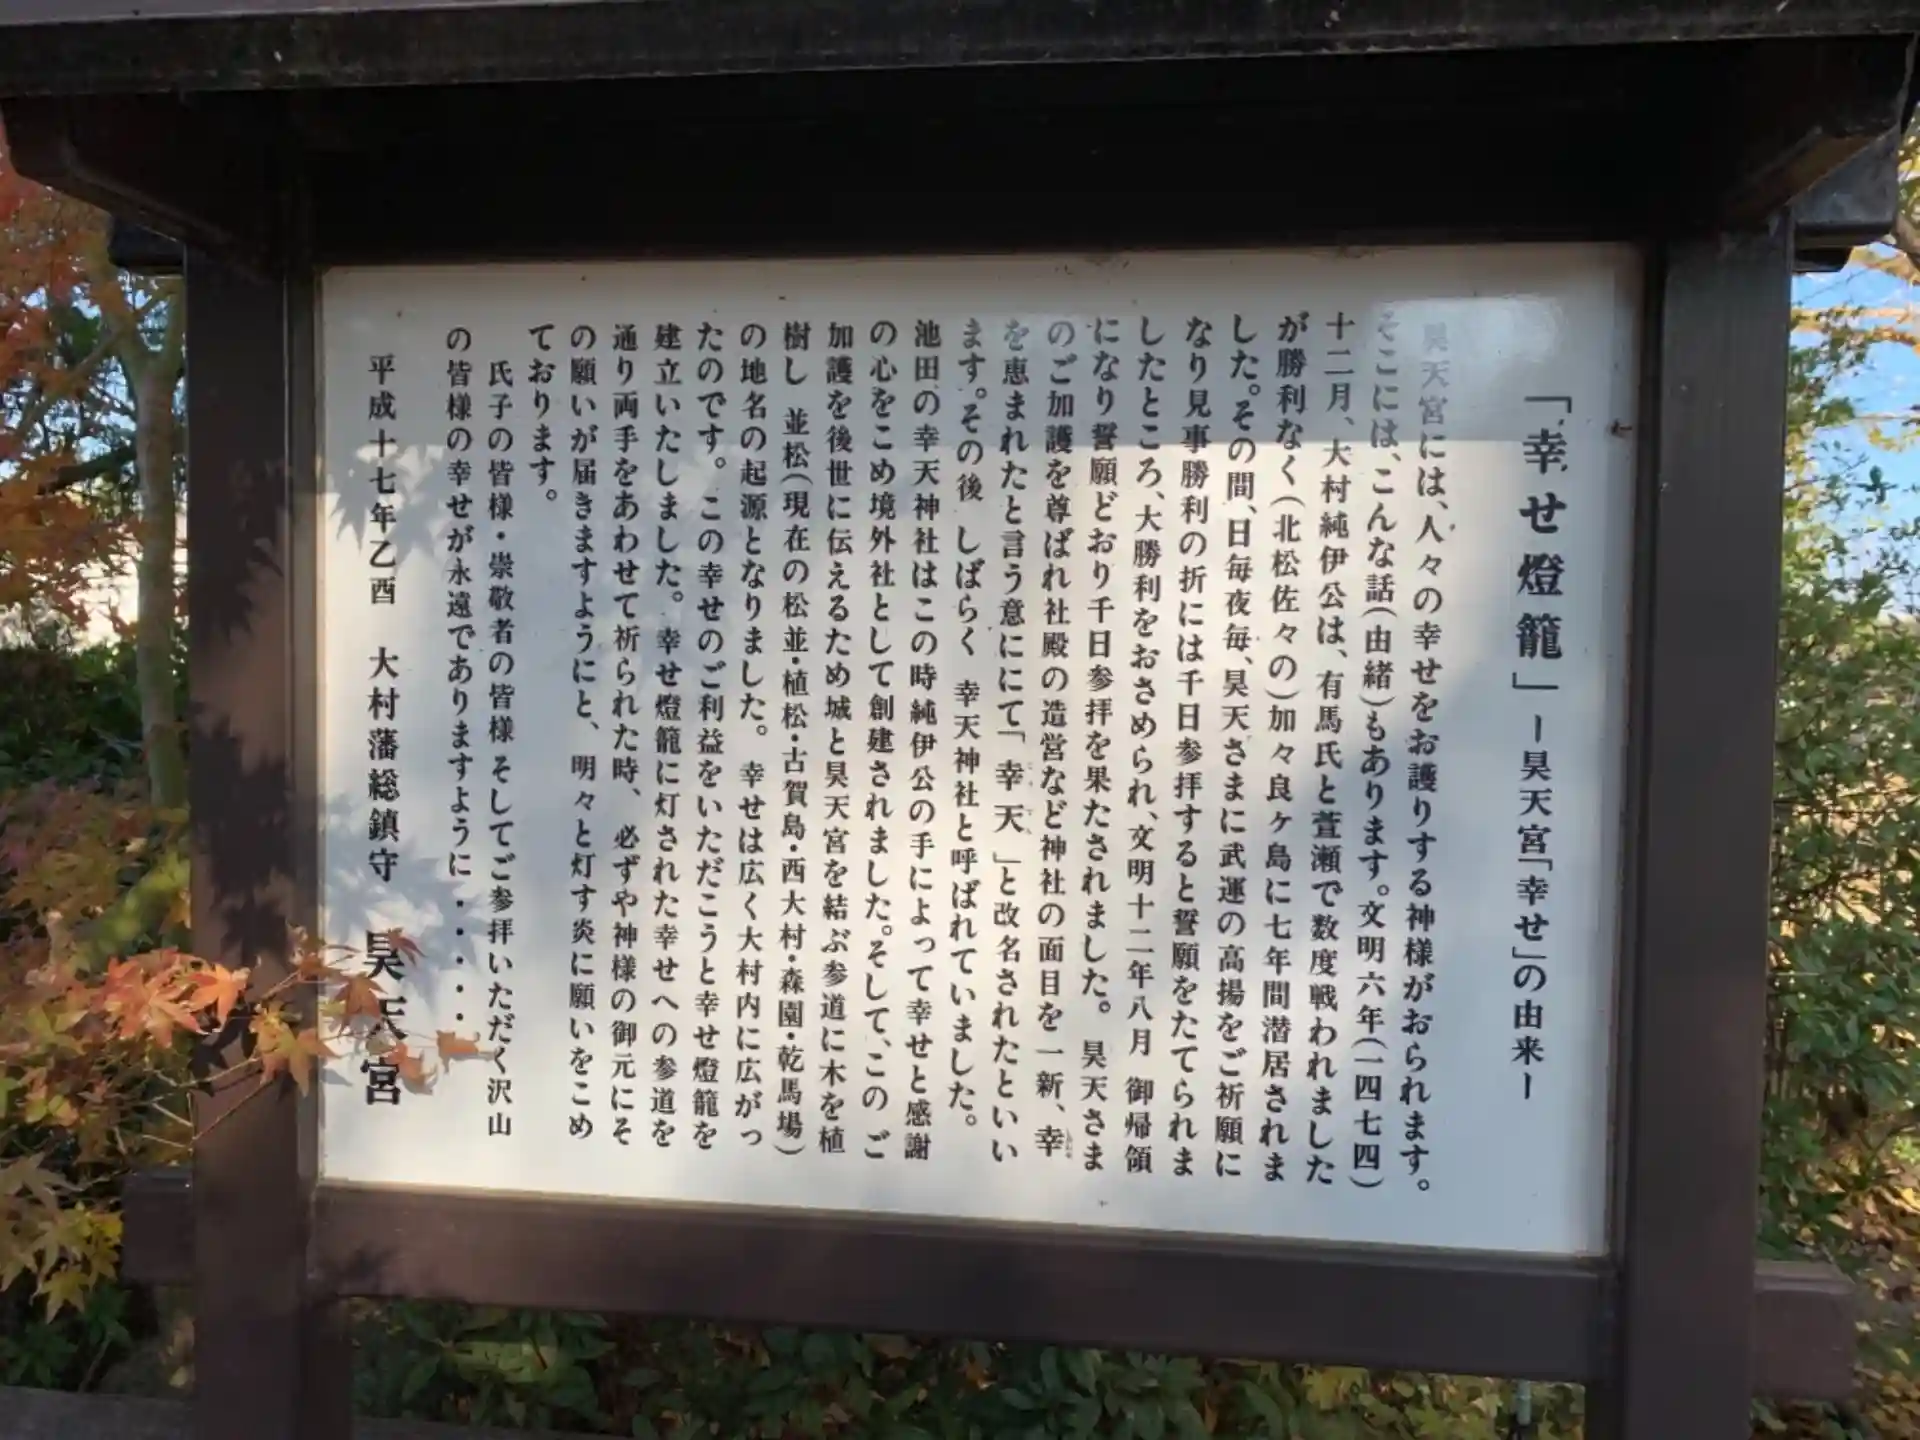 「幸せ燈籠」ー昊天宮「幸せ」の由来ー
昊天宮には、人々の幸せをお護りする神様がおられます。
そこには、こんな話(由緒)もあります。文明六年(一四七四)
十二月、大村純伊公は、有馬氏と萱瀬で数度戦われました
が勝利なく(北松佐々の)加々良ヶ島に七年間潜居されま
した。その間、日毎夜毎、昊天さまに武運の高揚をご祈願に
なり見事勝利の折には千日参拝すると誓願をたてられま
したところ、大勝利をおさめられ、文明十二年八月 御帰領
になり誓願どおり千日参拝を果たされました。 昊天さま
のご加護を尊ばれ社殿の造営など神社の面目を一新、幸
を恵まれたと言う意にて「幸天」と改名されたといい
ます。その後 しばらく 幸天神社と呼ばれていました。
池田の幸天神社はこの時純伊公の手によって幸せと感謝
の心をこめ境外社として創建されました。そして、この ご
加護を後世に伝えるため城と昊天宮を結ぶ参道に木を植
樹し 並松(現在の松並・植松・古賀島・西大村・森園・乾馬場)
の地名の起源となりました。 幸せは広く大村内に広がっ
たのです。この幸せのご利益をいただこうと幸せ燈籠を
建立いたしました。幸せ燈籠に灯された幸せへの参道を
通り両手をあわせて祈られた時、 必ずや神様の御元にそ
の願いが届きますようにと、明々と灯す炎に願いをこめ
ております。
氏子の皆様・崇敬者の皆様 そしてご参拝いただく沢山
の皆様の幸せが永遠でありますように・・・・・
平成十七年乙酉 大村藩総鎮守 昊天宮